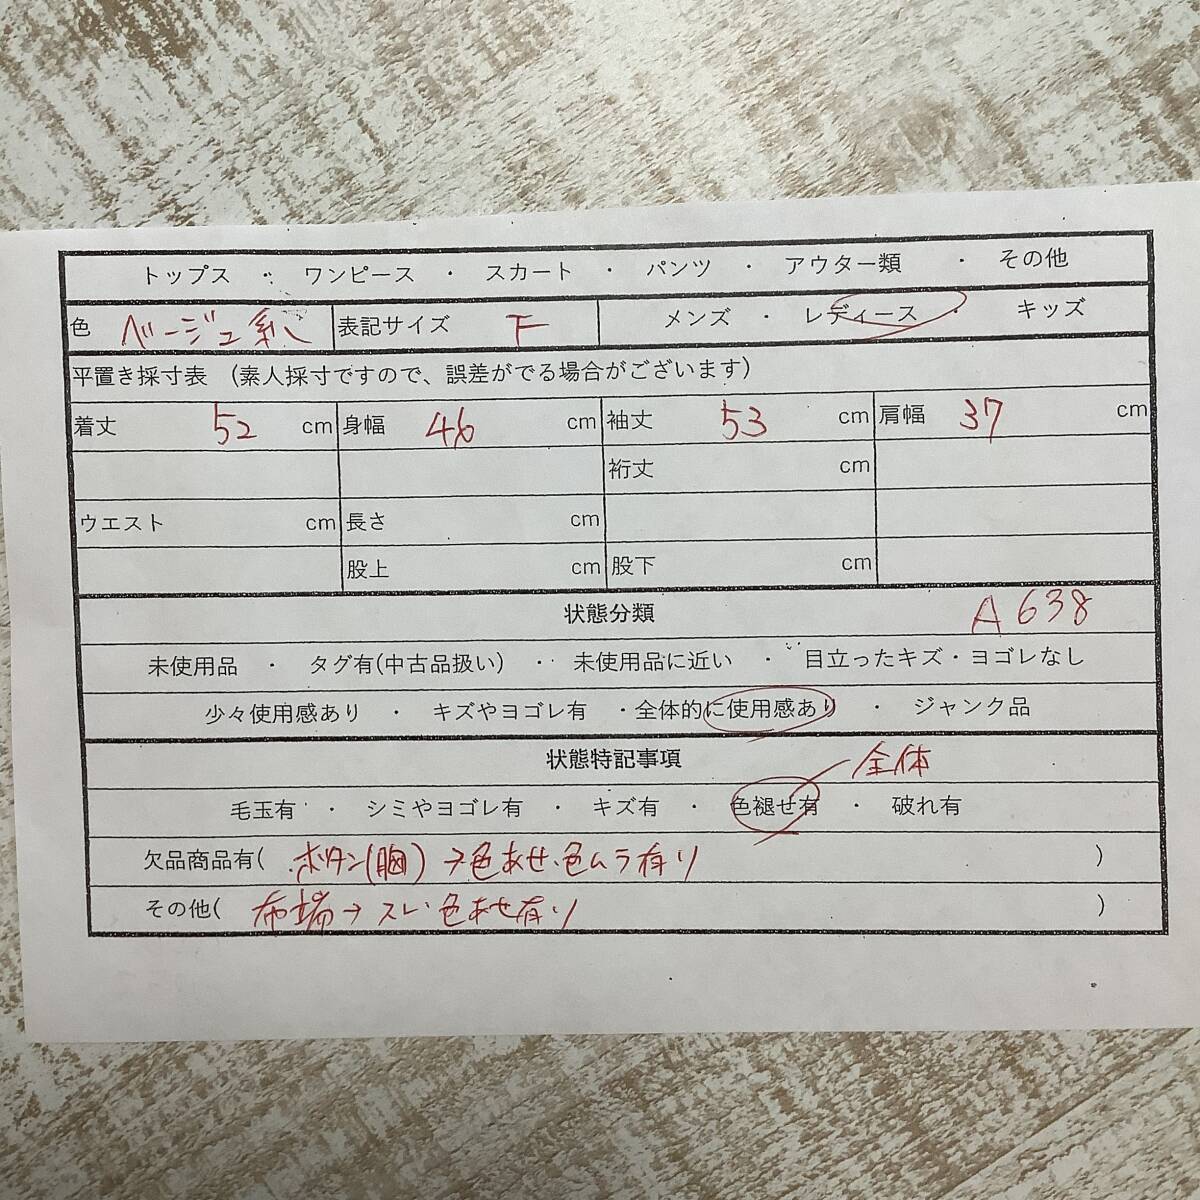 トップス ・ ワンピース ・ スカート ・ パンツ ・ アウター類 ・ その他
色 ベージュ系 表記サイズ F メンズ ・ レディース ・ キッズ
平置き採寸表 (素人採寸ですので、誤差がでる場合がございます)
着丈 52 cm 身幅 46 cm 袖丈 53 cm 肩幅 37 cm
裄丈 cm
ウエスト cm 長さ cm
股上 cm 股下 cm
状態分類 A638
未使用品 ・ タグ有(中古品扱い) ・ 未使用品に近い ・ 目立ったキズ・ヨゴレなし
少々使用感あり ・ キズやヨゴレ有 ・全体的に使用感あり ・ ジャンク品
状態特記事項 全体
毛玉有 ・ シミやヨゴレ有 ・ キズ有 ・ 色褪せ有 ・ 破れ有
欠品商品有( ボタン(胸)→色あせ、色ムラ有り )
その他( 布端→スレ、色あせ有り )